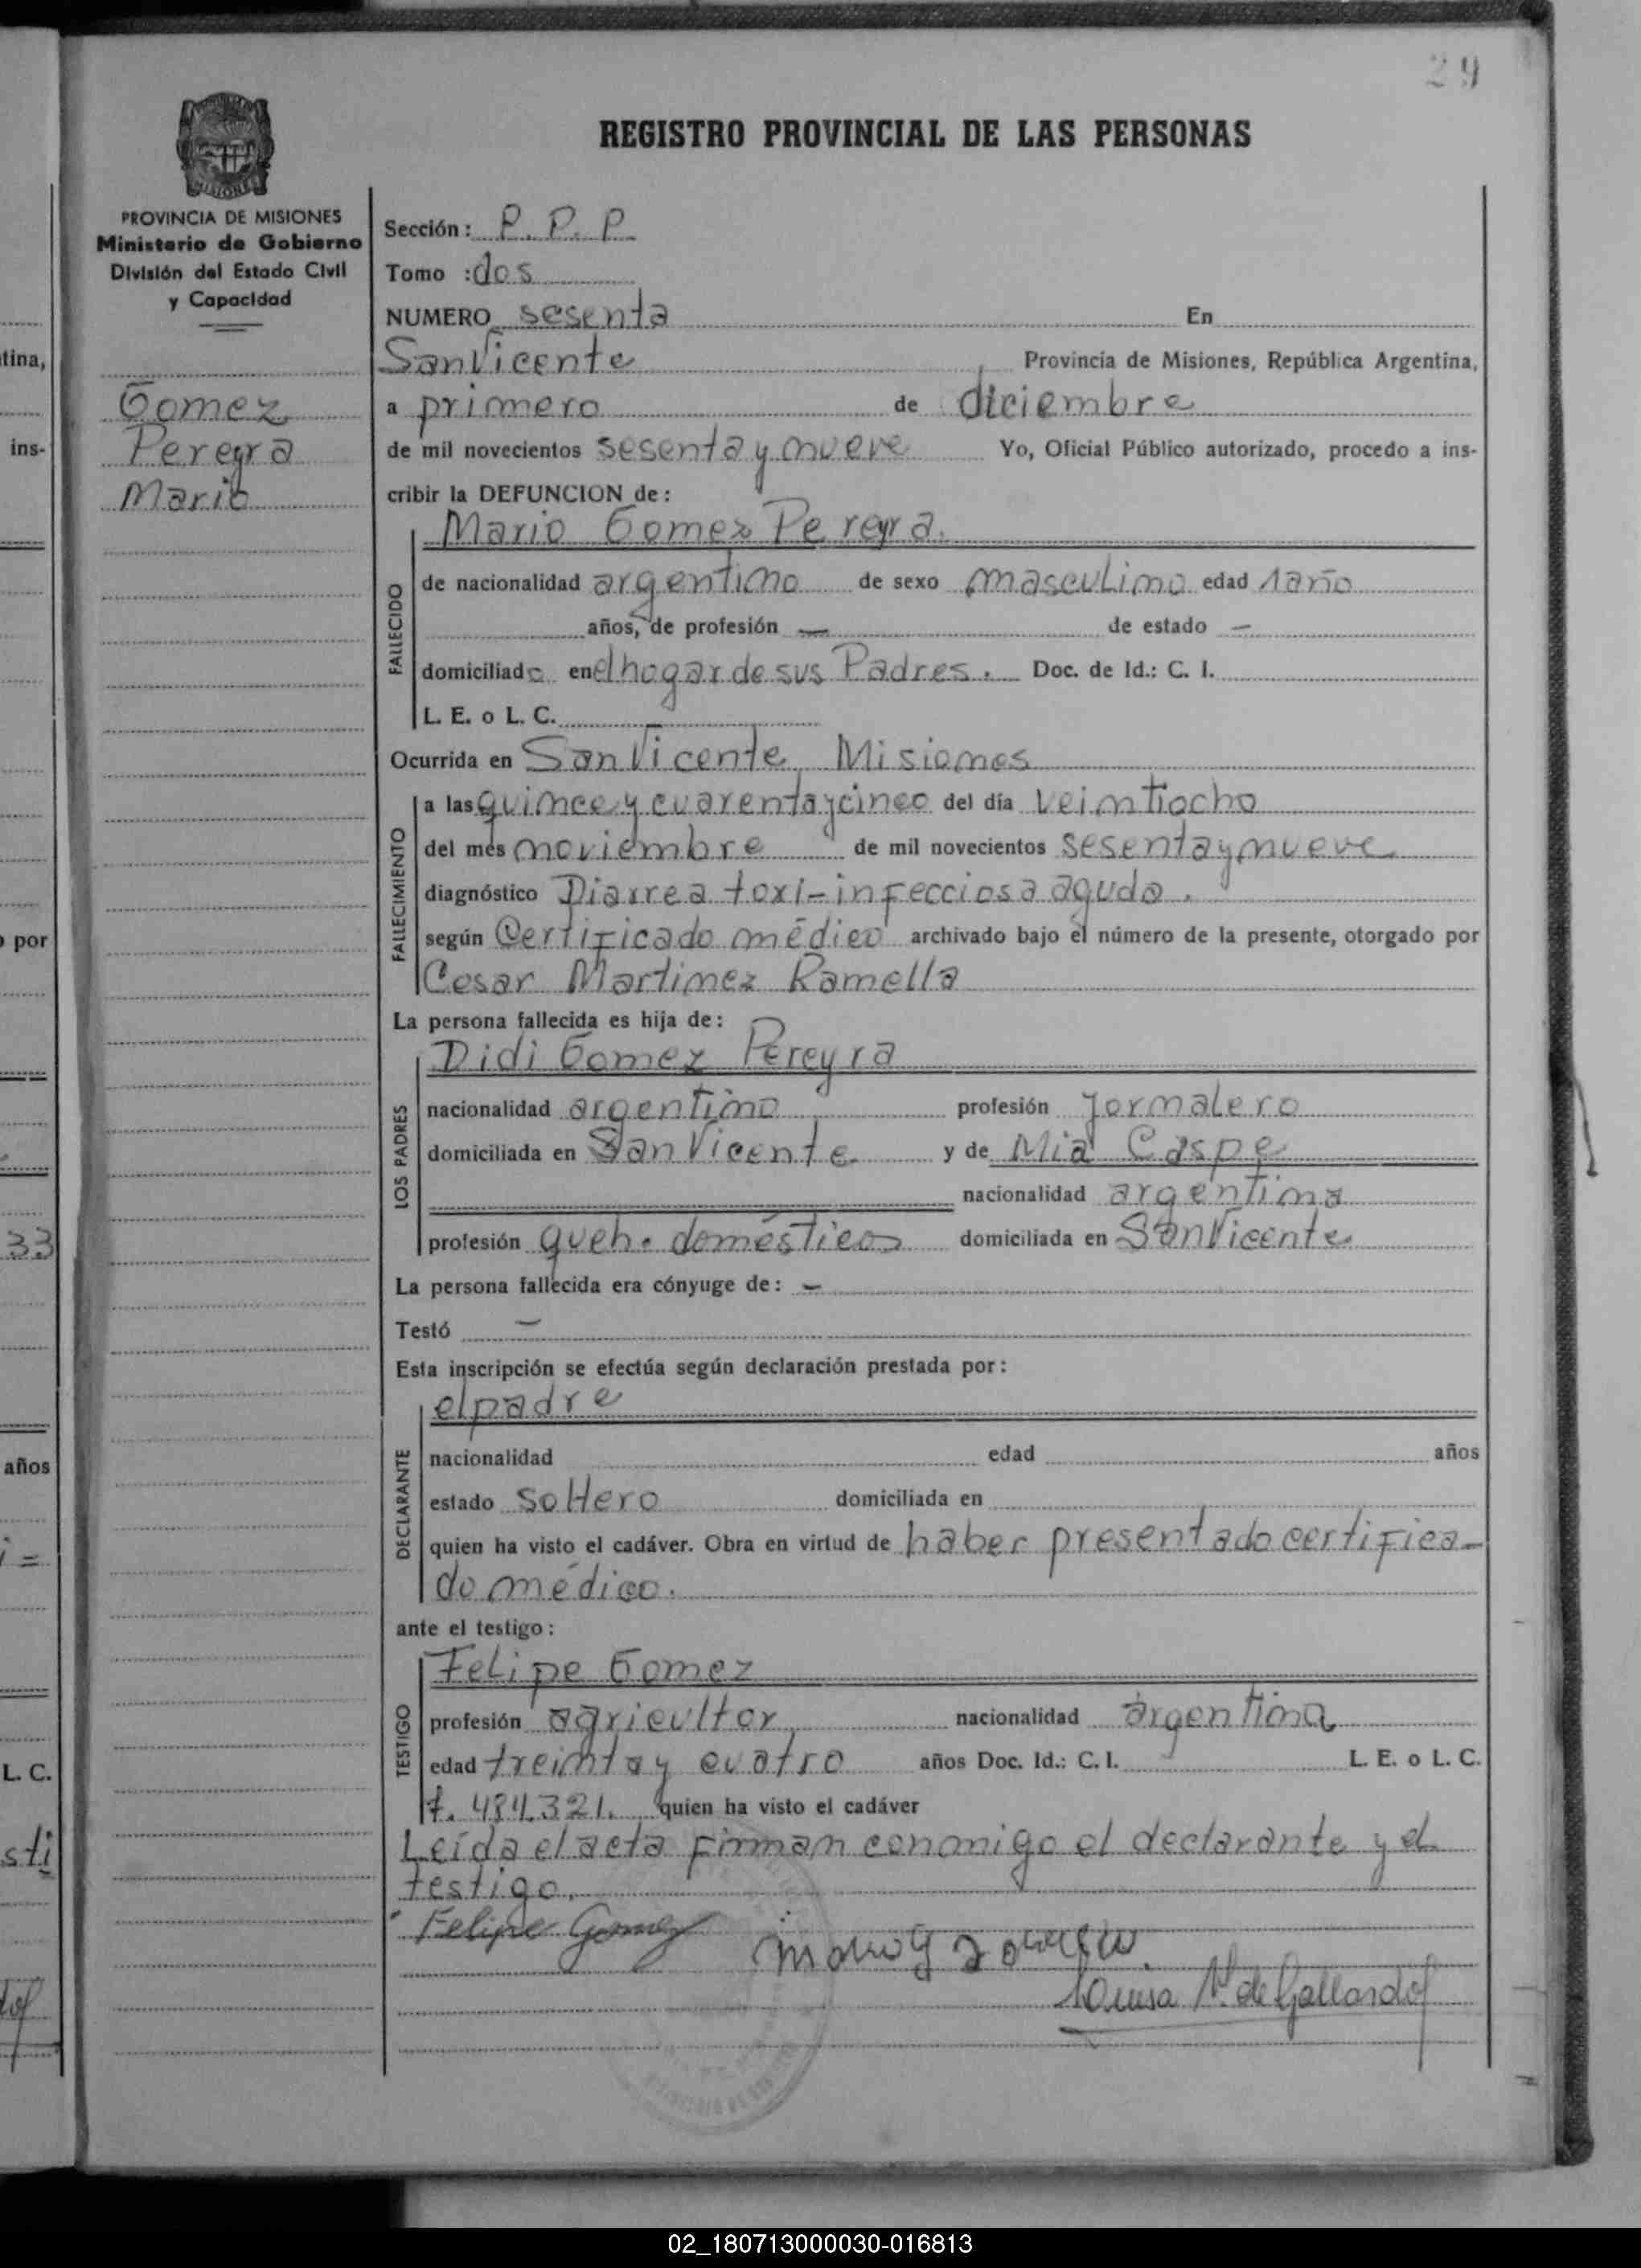 29
REGISTRO PROVINCIAL DE LAS PERSONAS
PROVINCIA DE MISIONES
Ministerio de Gobierno
División del Estado Civil
y Capacidad
Gomez
Pereyra
Mario
Sección: P. P. P
Tomo : dos
NUMERO sesenta En
San Vicente Provincia de Misiones, República Argentina,
a primero de diciembre
de mil novecientos sesenta y nueve Yo, Oficial Público autorizado, procedo a ins-
cribir la DEFUNCION de:
Mario Gomez Pereyra.
FALLECIDO
de nacionalidad argentino de sexo masculino edad 1 año
años, de profesión — de estado —
domiciliado en el hogar de sus Padres. Doc. de Id.: C. I.
L. E. o L. C.
Ocurrida en San Vicente, Misiones
FALLECIMIENTO
a las quince y cuarenta y cinco del día veintiocho
del mes noviembre de mil novecientos sesenta y nueve
diagnóstico Diarrea toxi-infecciosa aguda.
según Certificado médico archivado bajo el número de la presente, otorgado por
Cesar Martinez Ramella
La persona fallecida es hija de:
LOS PADRES
Didi Gomez Pereyra
nacionalidad argentino profesión Jornalero
domiciliada en San Vicente y de Mia Caspe
nacionalidad argentina
profesión queh. domésticos domiciliada en San Vicente
La persona fallecida era cónyuge de: —
Testó —
Esta inscripción se efectúa según declaración prestada por:
DECLARANTE
el padre
nacionalidad edad años
estado soltero domiciliada en
quien ha visto el cadáver. Obra en virtud de haber presentado certifica-
do médico.
ante el testigo:
TESTIGO
Felipe Gomez
profesión agricultor nacionalidad argentina
edad treinta y cuatro años Doc. Id.: C. I. L. E. o L. C.
7.484.321. quien ha visto el cadáver
Leída el acta firman conmigo el declarante y el
testigo.
Felipe Gomez
Luisa de Gallardo
tina,
ins-
por
33
años
L. C.
sti
02_180713000030-016813